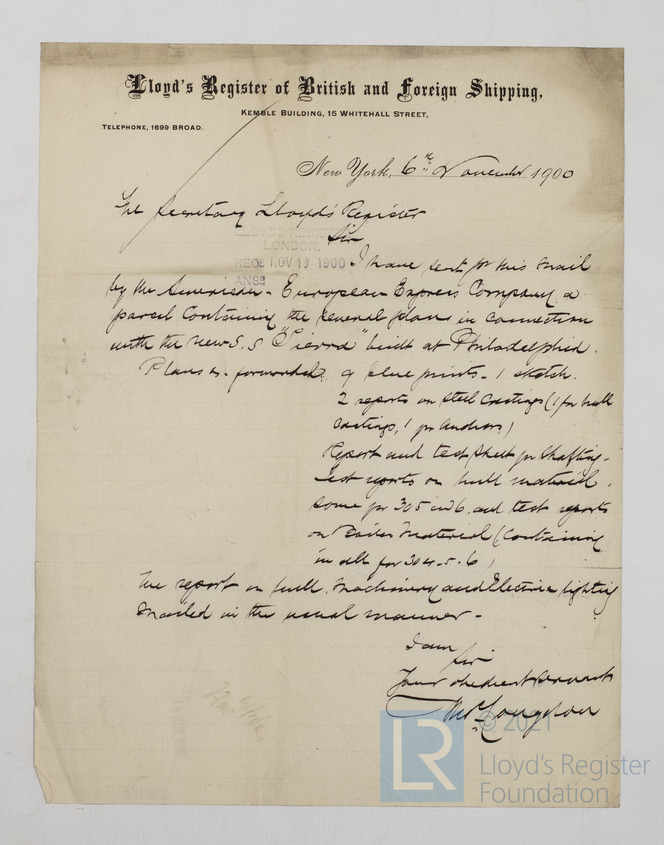 Lloyd's Register of British and Foreign Shipping,
KEMBLE BUILDING, 15 WHITEHALL STREET,
TELEPHONE, 1699 BROAD.
New York, 6th November 1900
The Secretary Lloyd's Register
Sir
LLOYD'S REGISTER
LONDON.
REC: NOV 19 1900
ANSD
I have sent for this mail
by the American-European Express Company a
parcel containing the several plans in connection
with the new S.S "Sierra" built at Philadelphia.
Plans &c. forwarded. 9 blue prints - 1 sketch.
2 reports on steel castings (1 for hull
castings, 1 for anchors)
Report and test sheet for shafting -
test reports on hull material,
some for 305 and 6, and test reports
on Boiler Material (containing
in all for 304-5-6)
The report on hull, machinery and Electric lighting
mailed in the usual manner -
I am
Sir
Your obedient servant
Thos. Congdon
© 2021
LR
Lloyd's Register
Foundation